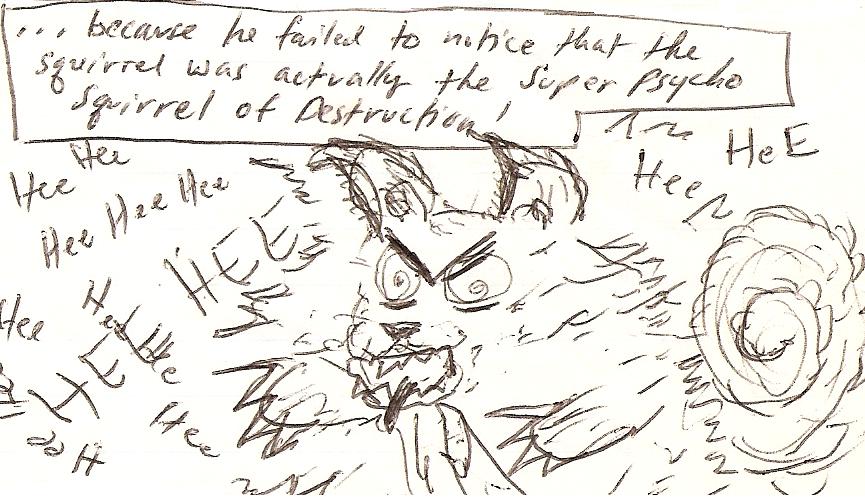 ... because he failed to notice that the
squirrel was actually the Super Psycho
Squirrel of Destruction!
Hee
HeE
Hee
Hee
Hee Hee Hee
HEE
Hee
Hee
HEE
Hee
Hee
H